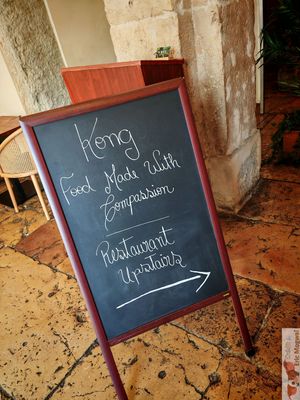 Kong
Food Made With
Compassion
Restaurant
Upstairs